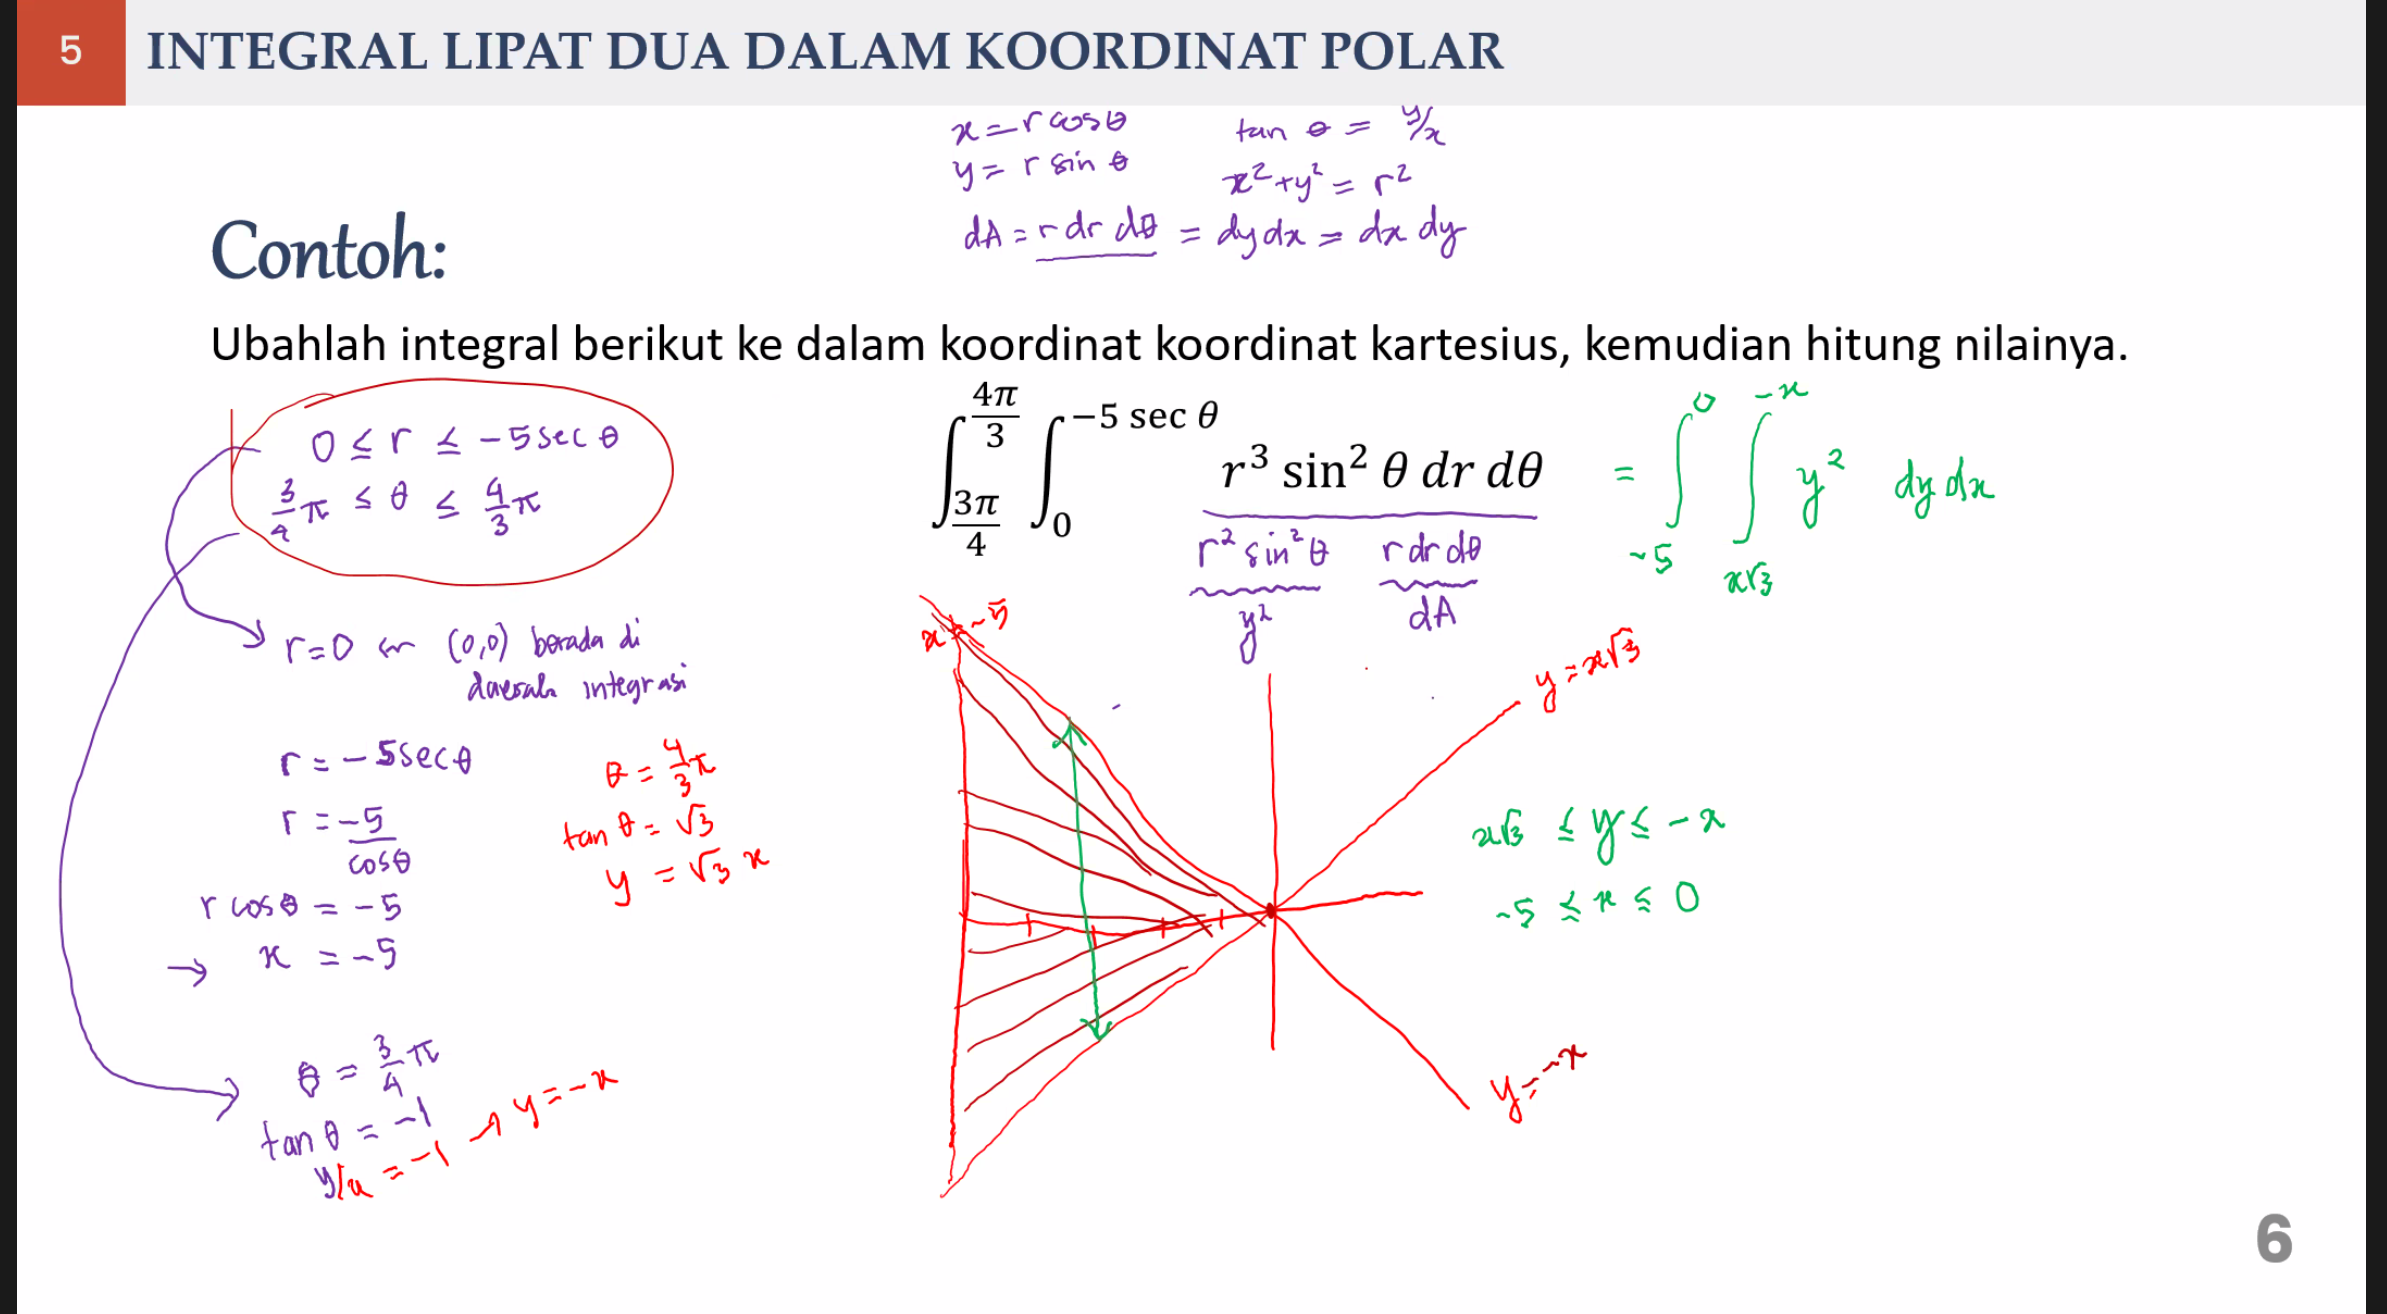 5 INTEGRAL LIPAT DUA DALAM KOORDINAT POLAR
x = r cos θ
y = r sin θ
tan θ = y/x
x² + y² = r²
dA = r dr dθ = dy dx = dx dy
Contoh:
Ubahlah integral berikut ke dalam koordinat koordinat kartesius, kemudian hitung nilainya.
0 ≤ r ≤ -5 sec θ
3/4 π ≤ θ ≤ 4/3 π
∫_{3π/4}^{4π/3} ∫_0^{-5 sec θ} r³ sin² θ dr dθ = ∫_{-5}^{0} ∫_{x√3}^{-x} y² dy dx
r² sin² θ r dr dθ
y² dA
r = 0 (0,0) berada di
daerah integrasi
r = -5 sec θ
r = -5/cos θ
r cos θ = -5
→ x = -5
θ = 4/3 π
tan θ = √3
y = √3 x
θ = 3/4 π
tan θ = -1
y/x = -1 → y = -x
x = -5
y = x√3
x√3 ≤ y ≤ -x
-5 ≤ x ≤ 0
y = -x
6